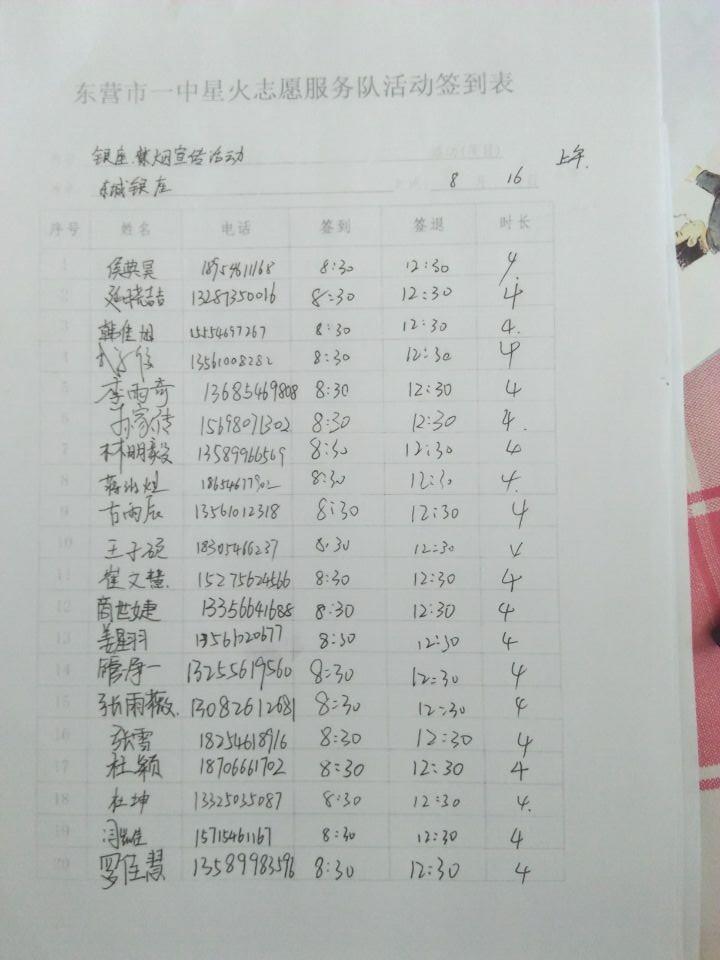 东营市一中星火志愿服务队活动签到表
银座禁烟宣传活动 上午
东城银座 8 月 16 日
序号 姓名 电话 签到 签退 时长
1 侯典昊 18954611168 8:30 12:30 4
2 13287350016 8:30 12:30 4
3 韩佳旭 15554697267 8:30 12:30 4
4 13561008282 8:30 12:30 4
5 李雨奇 13685469808 8:30 12:30 4
6 孙家传 15698071302 8:30 12:30 4.
7 林明毅 13589966569 8:30 12:30 4
8 18654677902 8:30 12:30 4
9 古雨辰 13561012318 8:30 12:30 4
10 王子硕 18305466237 8:30 12:30 4
11 崔文慧. 15275624566 8:30 12:30 4
12 商世婕 13356641688 8:30 12:30 4
13 姜星羽 8:30 12:30 4
14 13255619560 8:30 12:30 4
15 张雨薇. 13082612681 8:30 12:30 4
16 张雪 18254618916 8:30 12:30 4
17 杜颖 18706661702 8:30 12:30 4
18 杜坤 13325035087 8:30 12:30 4.
19 15715461167 8:30 12:30 4
20 罗佳慧 13589983596 8:30 12:30 4